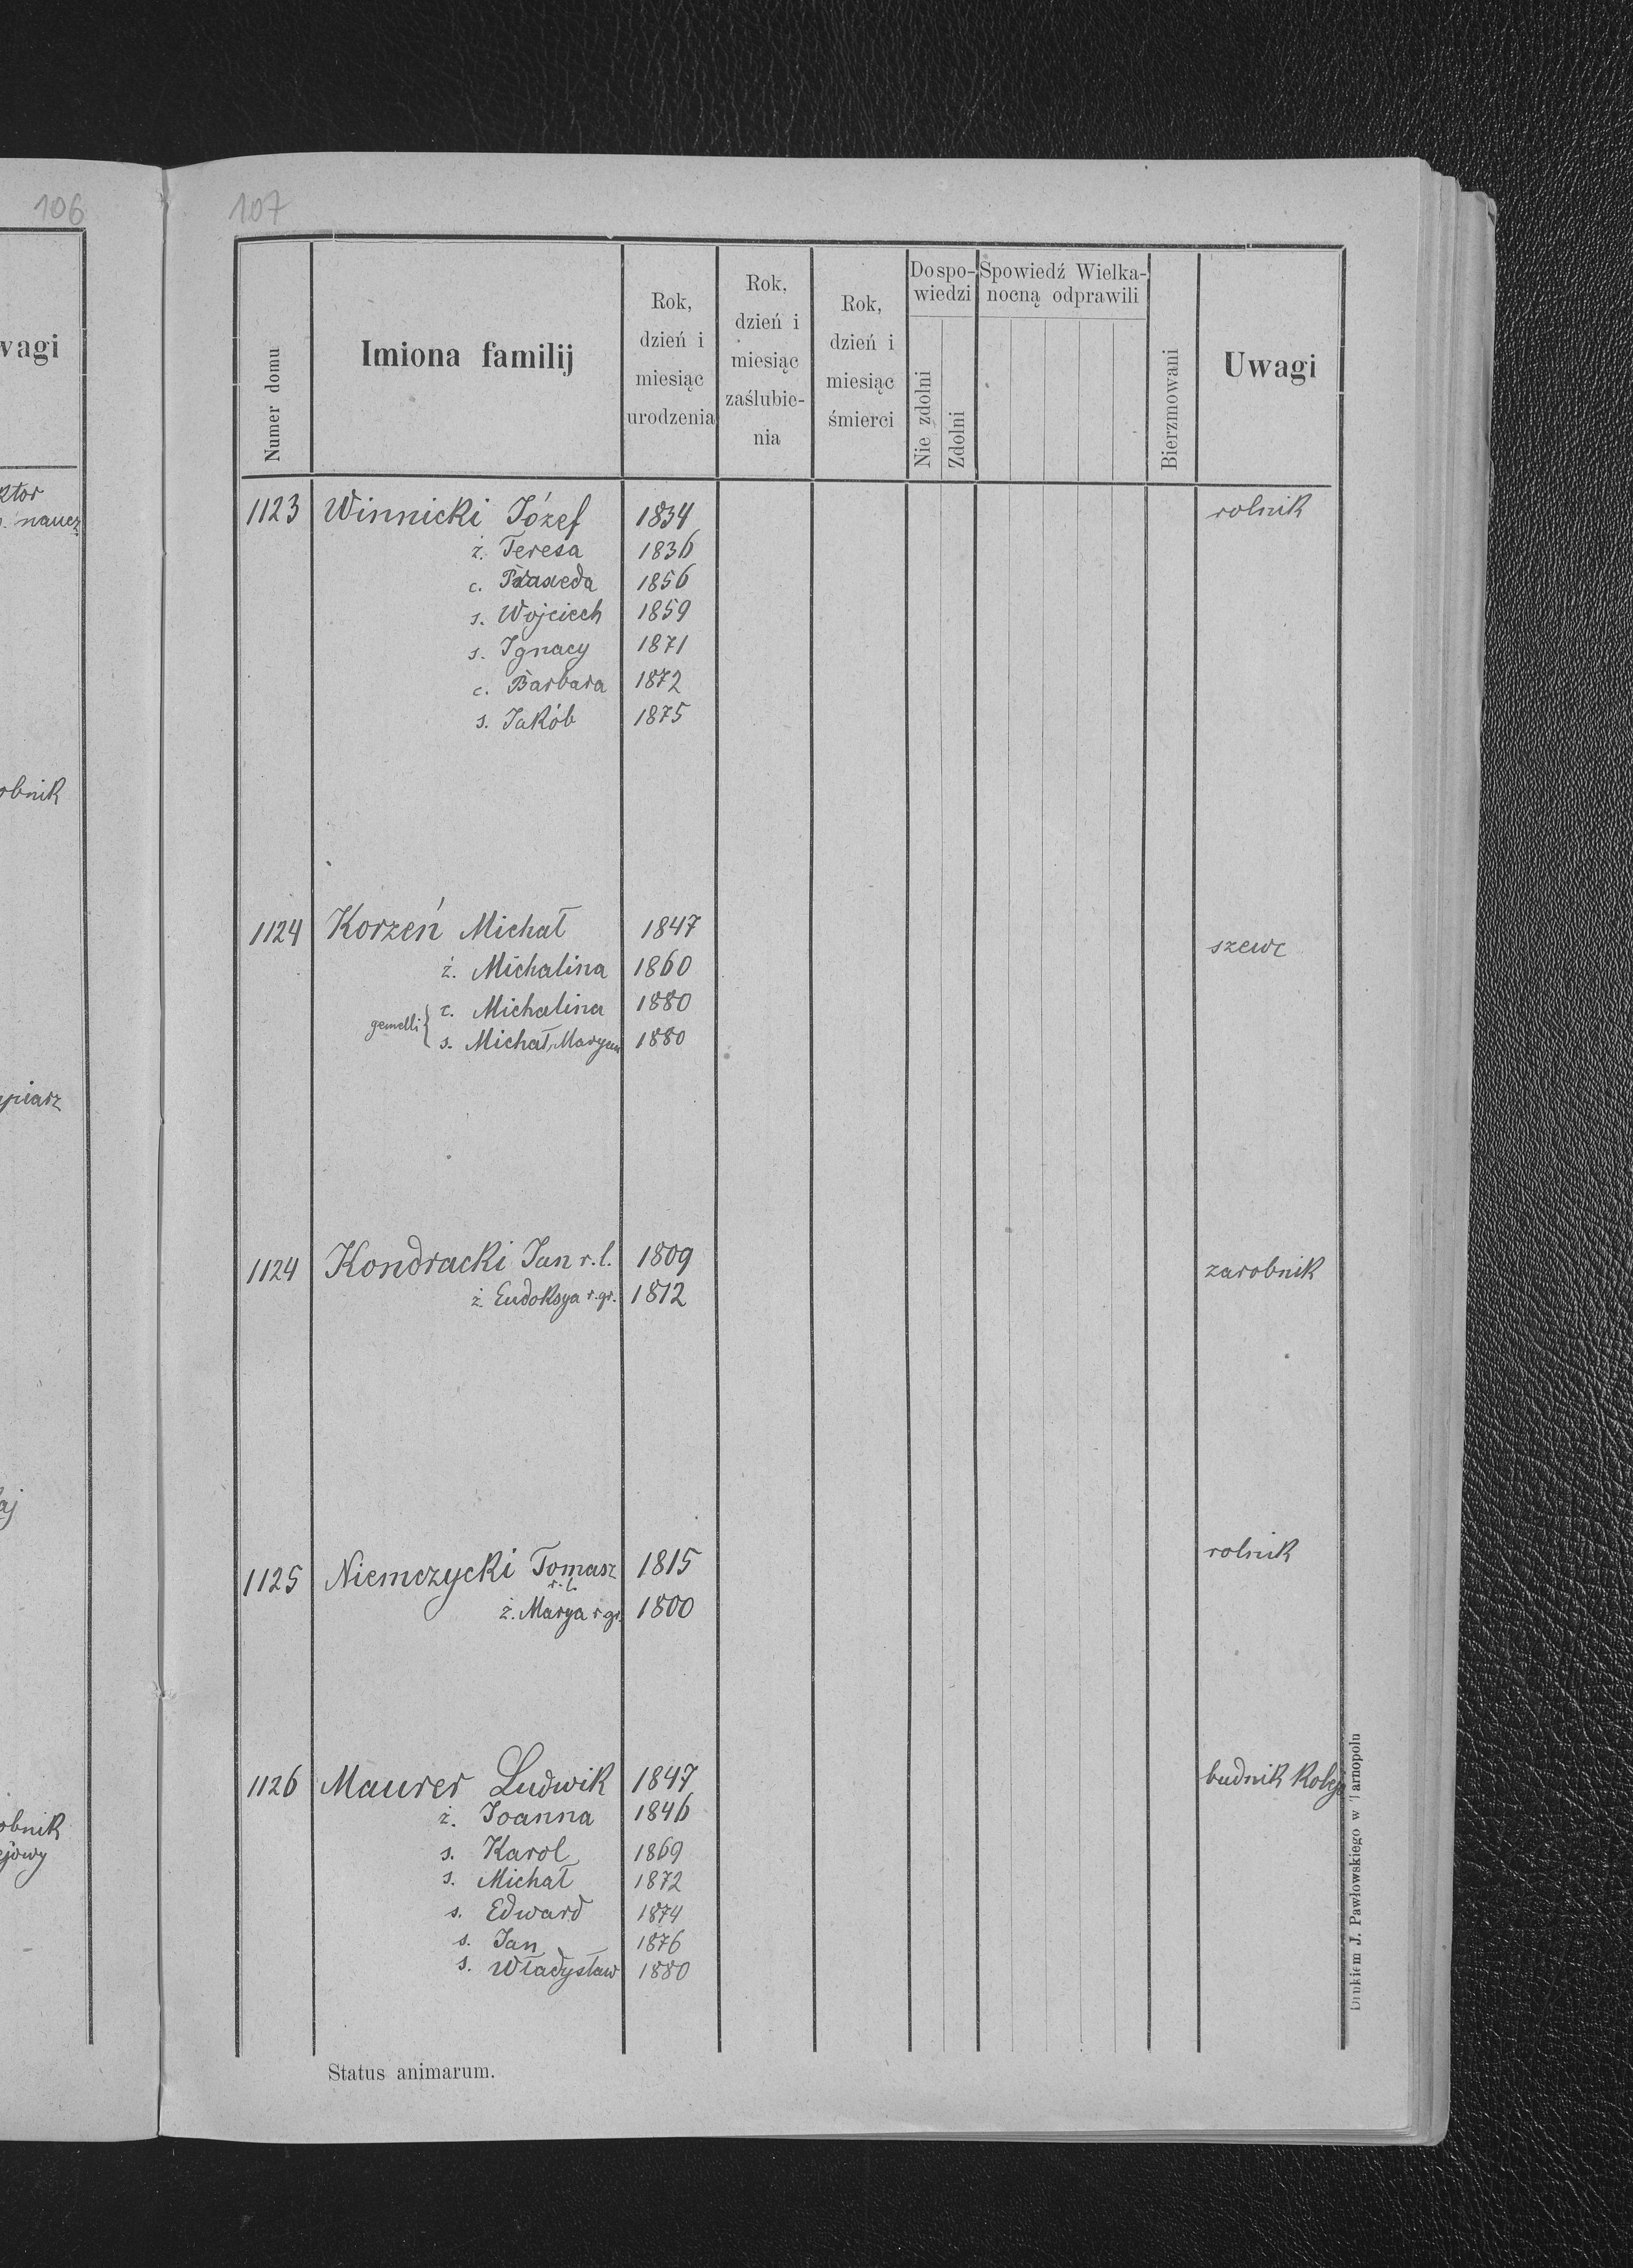 106
wagi
ktor
naucz
obnik
piarz
aj
obnik
ejowy
107
Numer domu
Imiona familij
Rok,
dzień i
miesiąc
urodzenia
Rok,
dzień i
miesiąc
zaślubie-
nia
Rok,
dzień i
miesiąc
śmierci
Do spo-
wiedzi
Nie zdolni
Zdolni
Spowiedź Wielka-
nocną odprawili
Bierzmowani
Uwagi
1123 Winnicki Józef 1834 rolnik
ż. Teresa 1836
c. Praxeda 1856
s. Wojciech 1859
s. Ignacy 1871
c. Barbara 1872
s. Jakób 1875
1124 Korzeń Michał 1847 szewc
ż. Michalina 1860
gemelli { c. Michalina 1880
s. Michał, Maryan 1880
1124 Kondracki Jan r. l. 1809 zarobnik
ż. Eudoksya r. gr. 1812
1125 Niemczycki Tomasz 1815 rolnik
r. l.
ż. Marya r gr. 1800
1126 Maurer Ludwik 1847 budnik Kolej
ż. Joanna 1846
s. Karol 1869
s. Michał 1872
s. Edward 1874
s. Jan 1876
s. Władysław 1880
Status animarum.
Drukiem J. Pawłowskiego w Tarnopolu